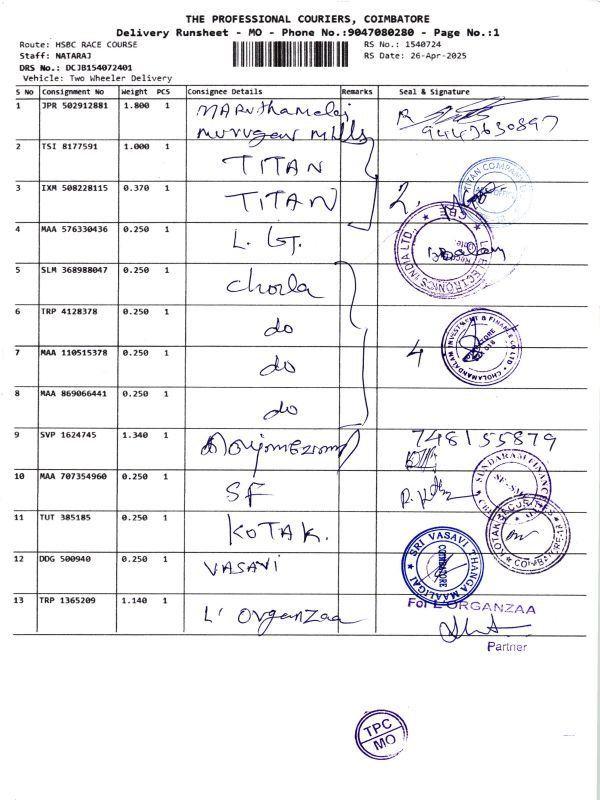 THE PROFESSIONAL COURIERS, COIMBATORE
Delivery Runsheet - MO - Phone No.:9047080280 - Page No.:1
Route: HSBC RACE COURSE
RS No.: 1540724
Staff: NATARAJ
RS Date: 26-Apr-2025
DRS No.: DCJB154072401
Vehicle: Two Wheeler Delivery
S No Consignment No Weight PCS Consignee Details Remarks Seal & Signature
1 JPR 502912881 1.800 1 Maruthamalai
Murugan Mills
2 TSI 8177591 1.000 1 TITAN
3 IXM 508228115 0.370 1 TITAN 2.
TITAN COMPANY
4 MAA 576330436 0.250 1 L. G.
LG ELECTRONICS INDIA LTD., ★ CBE ★
5 SLM 368988047 0.250 1 Chola
6 TRP 4128378 0.250 1 do
7 MAA 110515378 0.250 1 do 4
CHOLAMANDALAM INVESTMENT & FINANCE CO LTD
8 MAA 869066441 0.250 1 do
9 SVP 1624745 1.340 1 748155879
10 MAA 707354960 0.250 1 SF
SUNDARAM FINANCE
11 TUT 385185 0.250 1 KOTAK.
KOTAK SECURITIES
COIMBATORE
12 DDG 500940 0.250 1 VASAVI
SRI VASAVI THANGA MAALIGAI
COIMBATORE
13 TRP 1365209 1.140 1 L' Organzaa
For L'ORGANZAA
Partner
TPC
MO